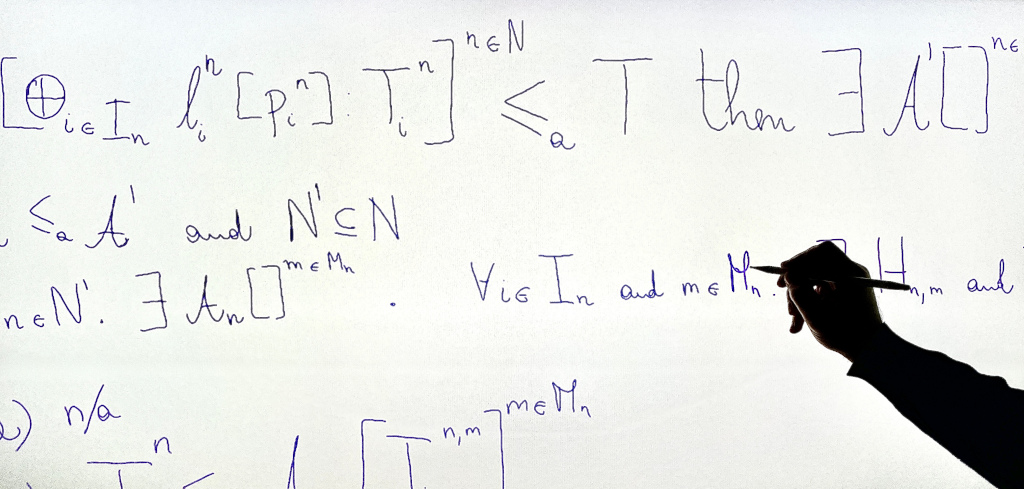 [⊕_{i∈I_n} l_i^n [p_i^n]. T_i^n]^{n∈N} ≤_a T then ∃ A'[]^{n∈
≤_a A' and N' ⊆ N
n∈N'. ∃ A_n[]^{m∈M_n} . ∀i∈I_n and m∈M_n. ∃ H_{n,m} and
a) n/a
T^n ≤ A [T_i^{n,m}]^{m∈M_n}